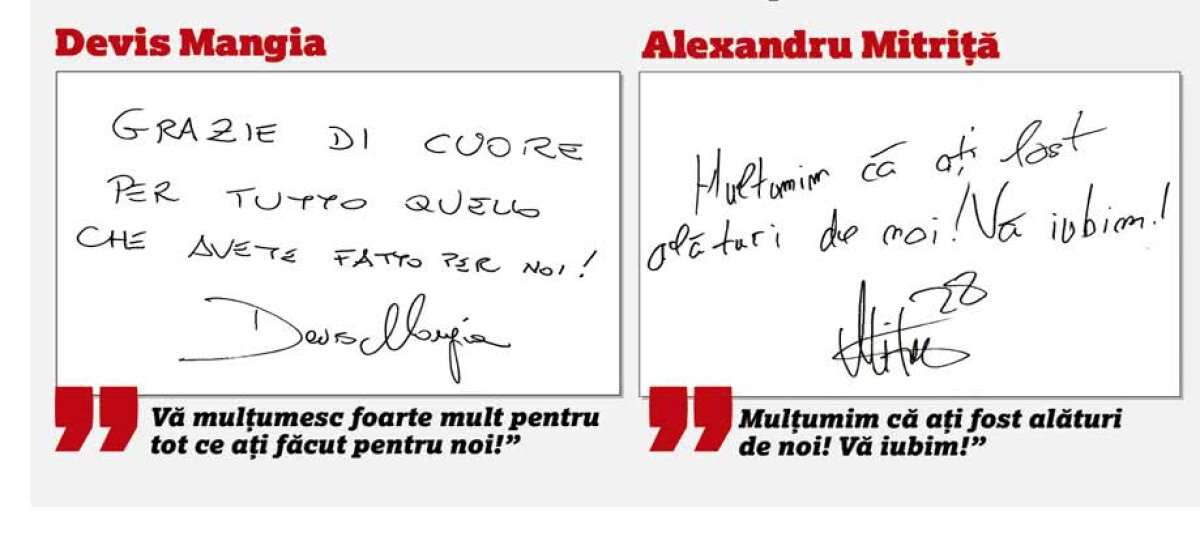 Devis Mangia
GRAZIE DI CUORE
PER TUTTO QUELLO
CHE AVETE FATTO PER NOI!
Devis Mangia
„Vă mulțumesc foarte mult pentru
tot ce ați făcut pentru noi!”
Alexandru Mitriță
Multumim că ați fost
alături de noi! Vă iubim!
28
„Mulțumim că ați fost alături
de noi! Vă iubim!”